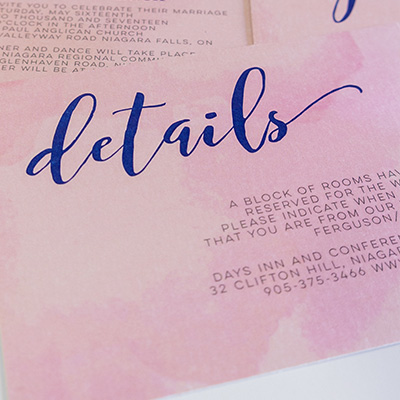 VITE YOU TO CELEBRATE THEIR MARRIAGE
TURDAY, MAY SIXTEENTH
O THOUSAND AND SEVENTEEN
O'CLOCK IN THE AFTERNOON
PAUL ANGLICAN CHURCH
VALLEYWAY ROAD NIAGARA FALLS, ON
NER AND DANCE WILL TAKE PLACE
NIAGARA REGIONAL COMM
GLENHAVEN ROAD,
ER WILL BE AT
details
A BLOCK OF ROOMS HAV
RESERVED FOR THE W
PLEASE INDICATE WHEN
THAT YOU ARE FROM OUR
FERGUSON/
DAYS INN AND CONFEREN
32 CLIFTON HILL, NIAGAR
905-375-3466 WWW